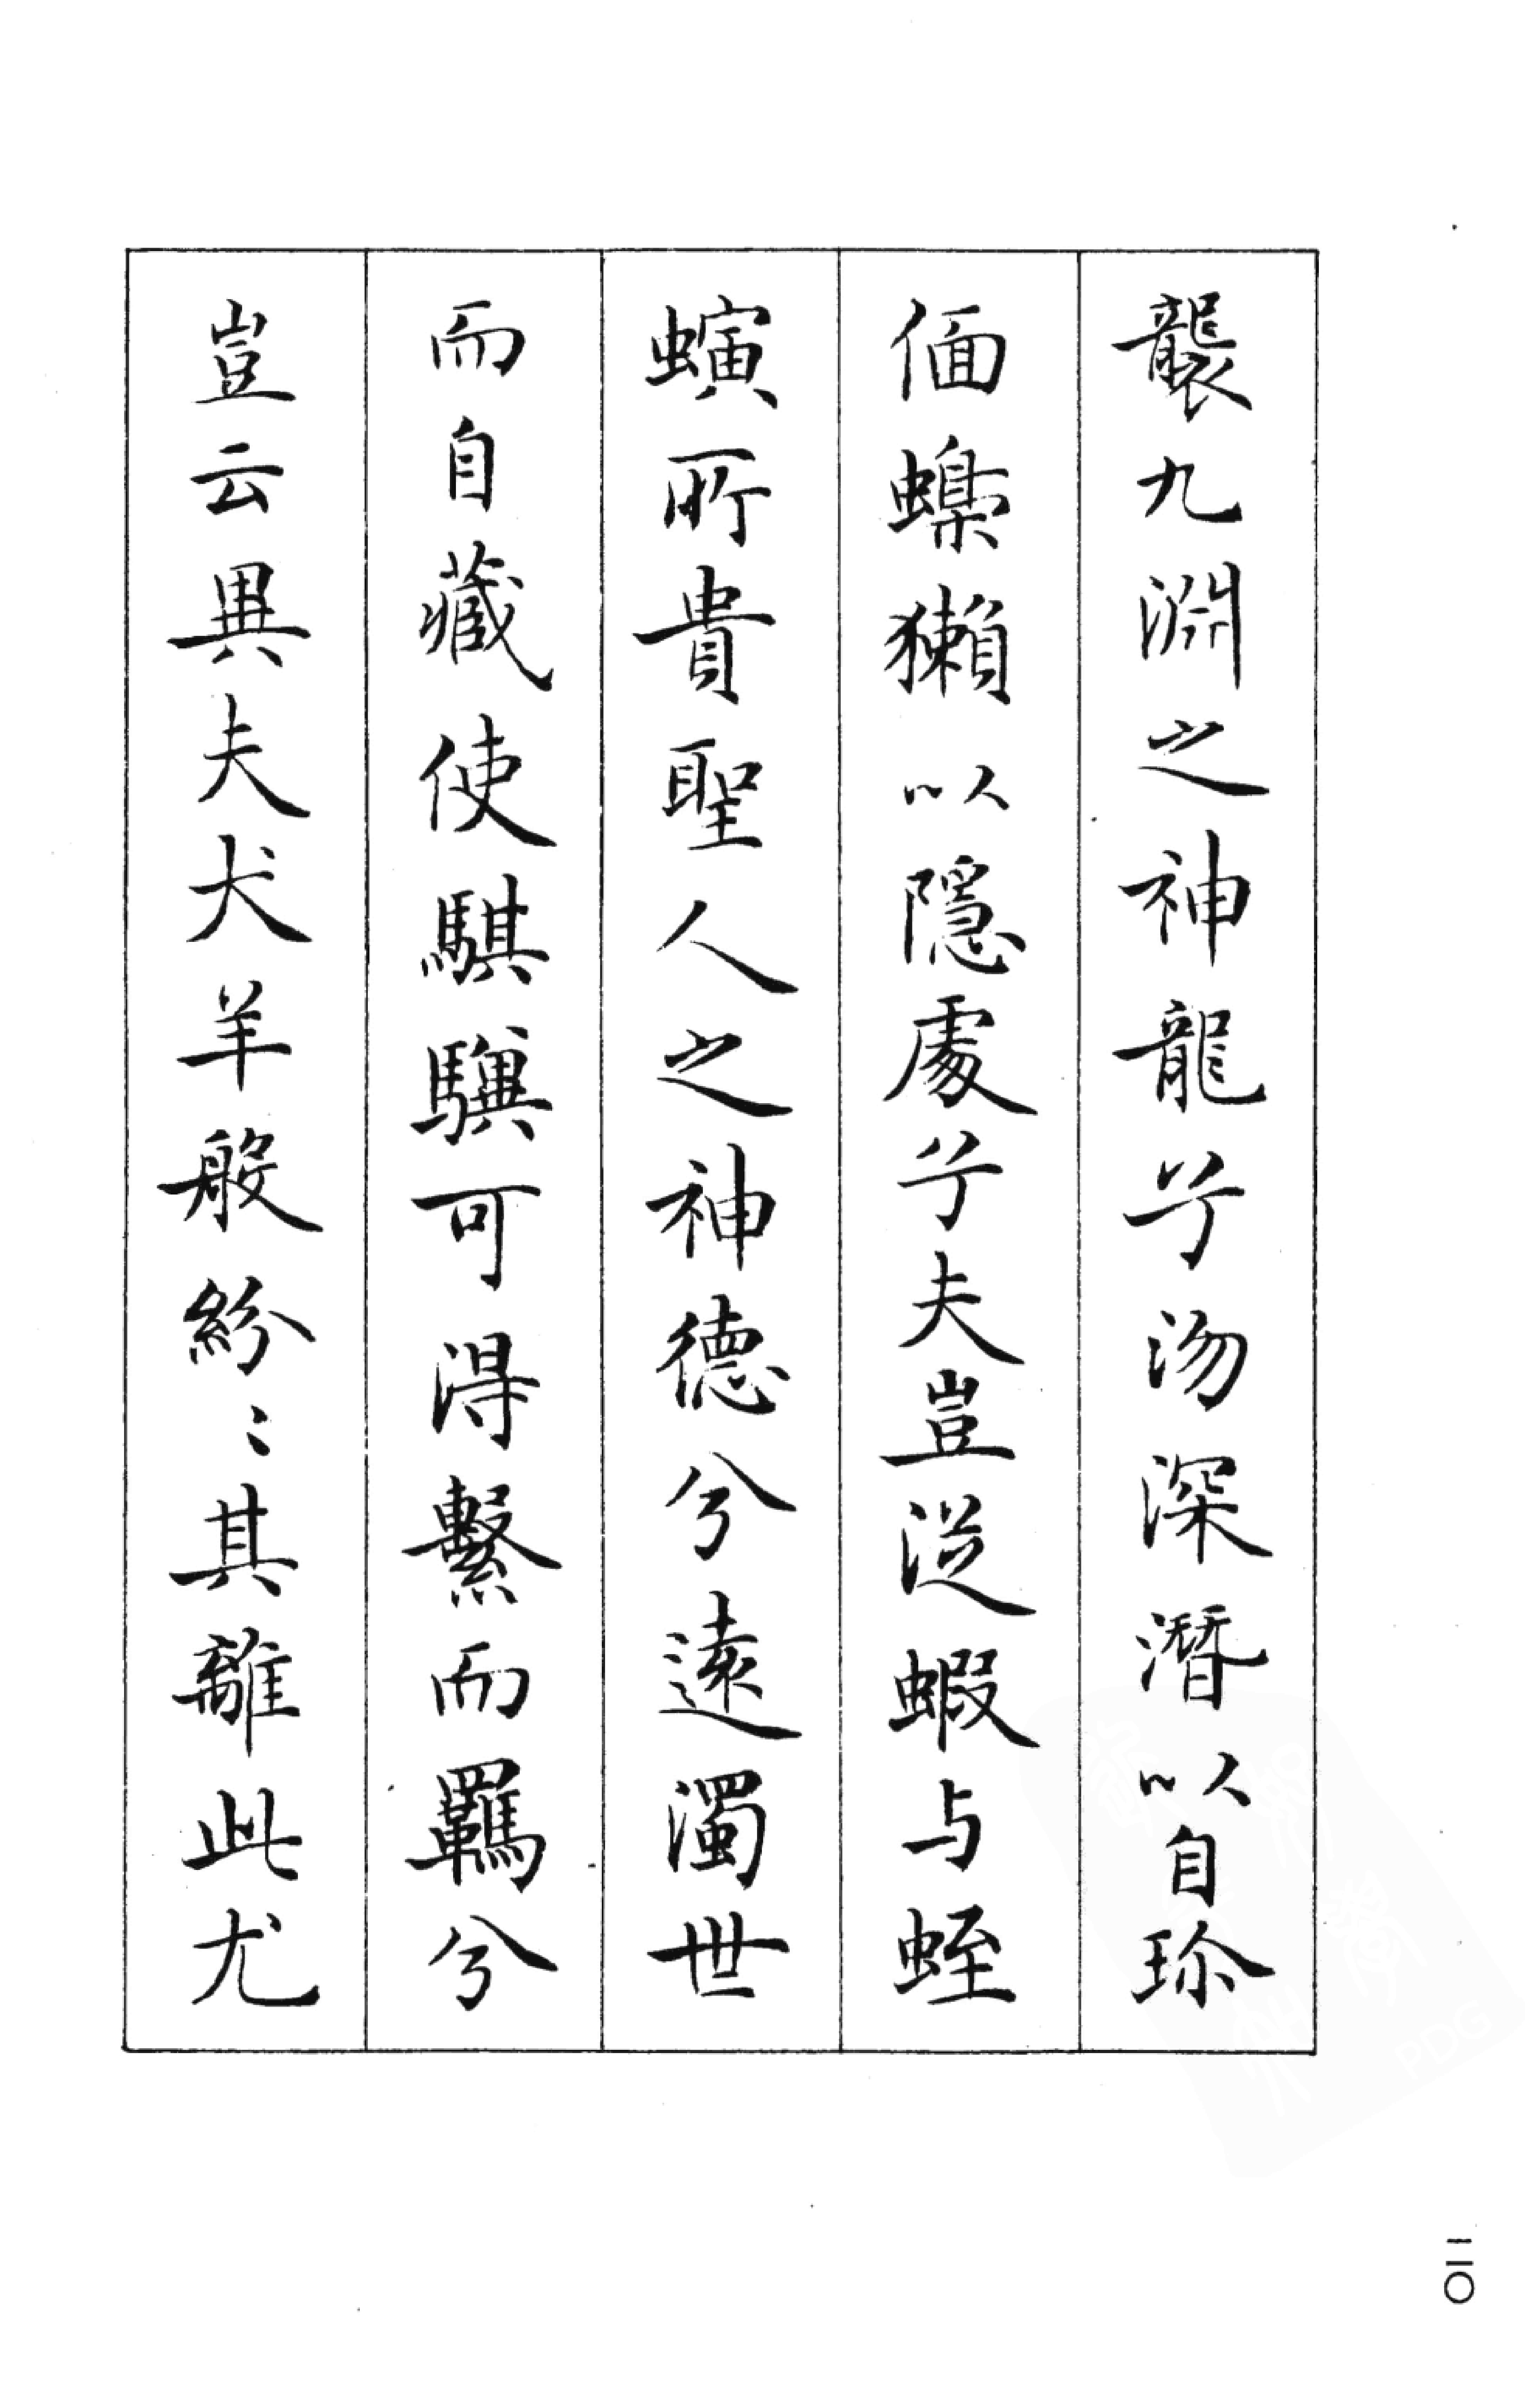 襲九淵之神龍兮沕深潛以自珍
偭蟂獺以隱處兮夫豈從蝦与蛭
螾所貴聖人之神德兮遠濁世
而自藏使騏驥可得繫而羈兮
豈云異夫犬羊般紛〻其離此尤
二〇